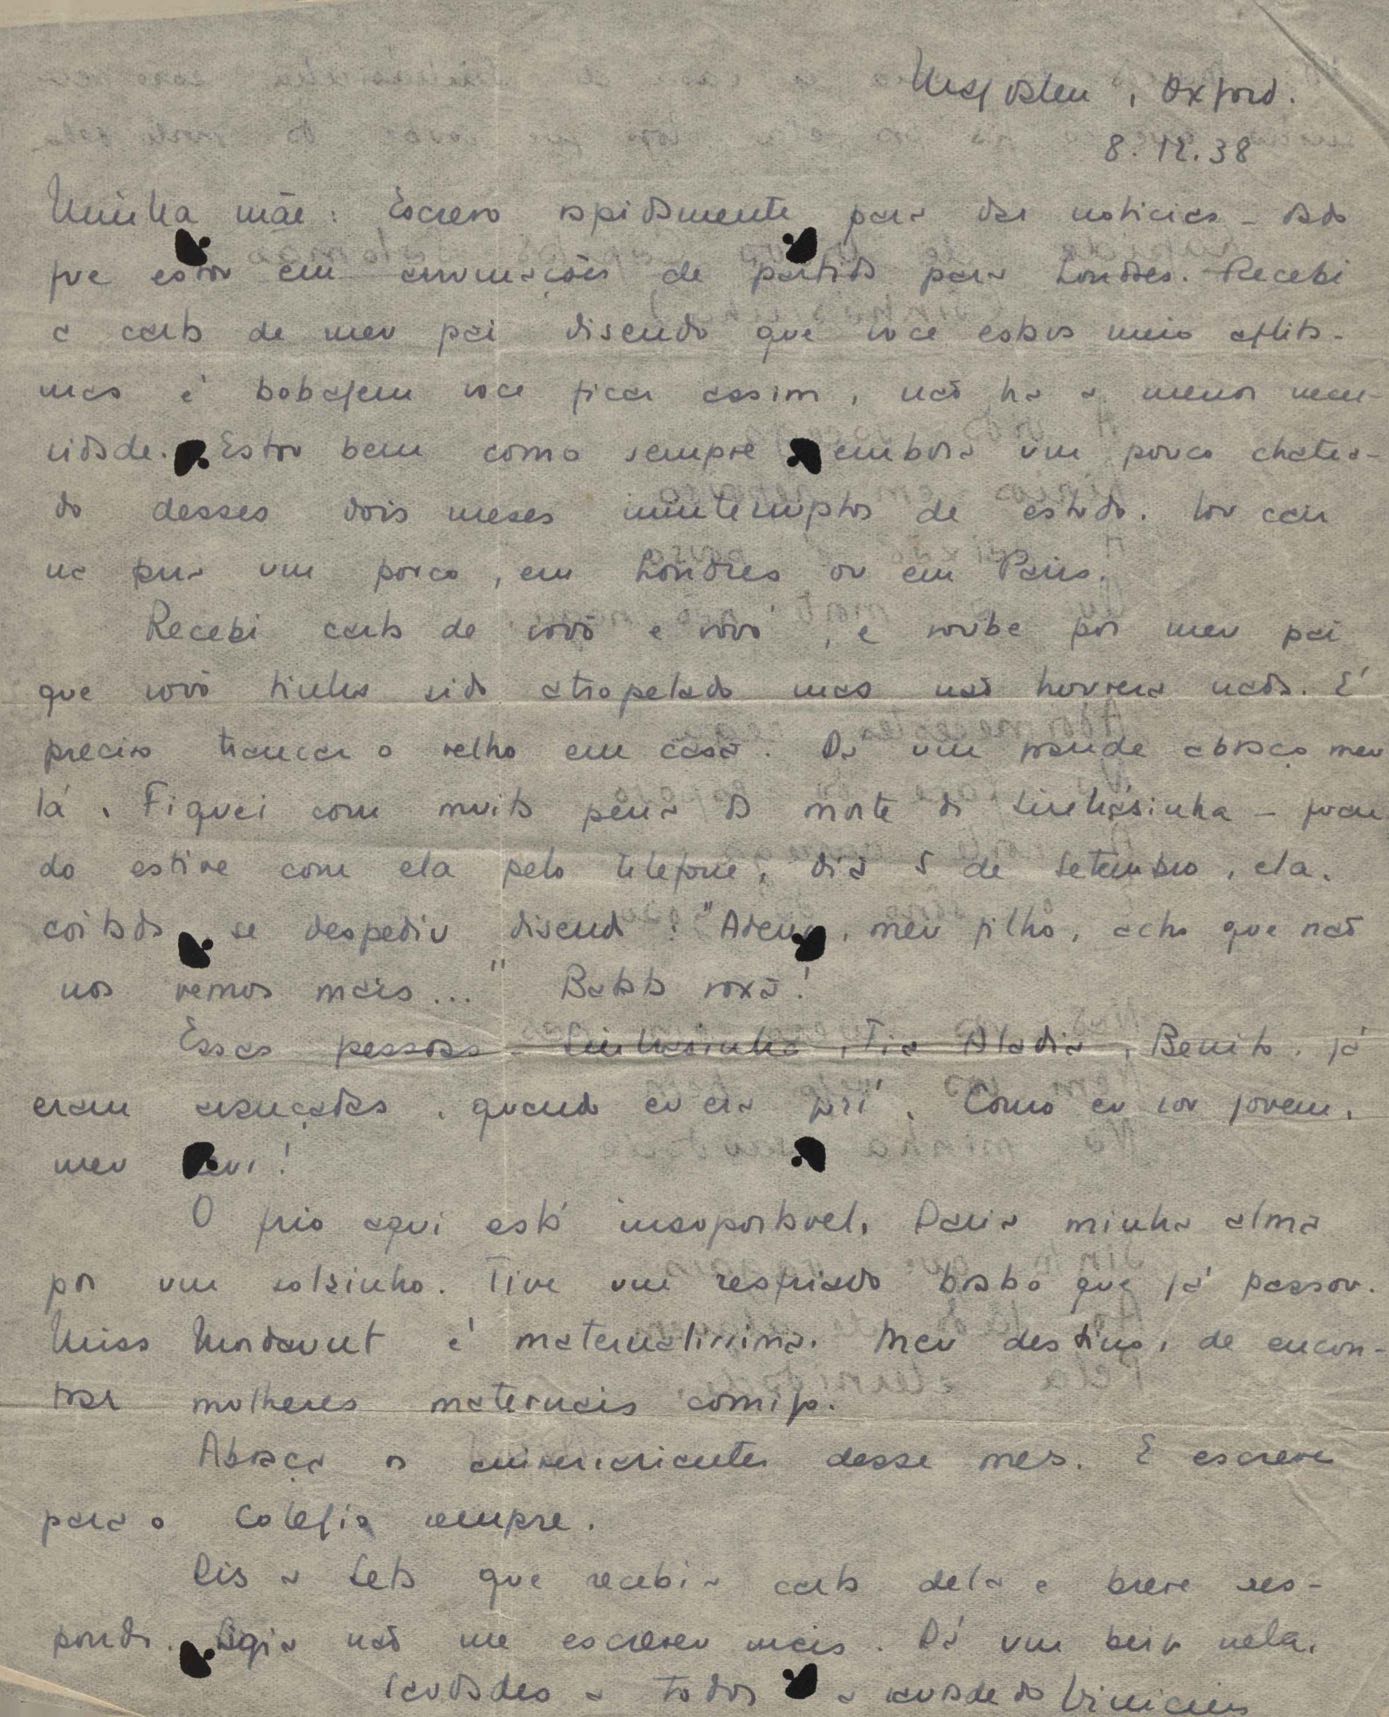 Magdalen, Oxford.
8.12.38
Minha mãe: Escrevo rapidamente para dar noticias – dado
que estou em arrumações de partida para Londres. Recebi
a carta de meu pai disendo que voce estava meio aflita –
mas é bobagem voce ficar assim, não ha a menor neces-
sidade. Estou bem como sempre embora um pouco chatea-
do desses dois meses ininterruptos de estudo. Vou cair
na pura um pouco, em Londres ou em Paris.
Recebi carta de vovó e vovô, e soube por meu pai
que vovô tinha sido atropelado mas não houvera nada. É
preciso trancar o velho em casa. Dá um grande abraço meu
lá. Fiquei com muita pena da morte de Sinhásinha – quan
do estive com ela pelo telefone, dia 5 de Setembro, ela,
coitada, se despediu disendo: "Adeus, meu filho, acho que não
nos vemos mais..." Batata roxa!
Essas pessoas – Sinhasinha, Tia Aladia, Benito, já
eram avançadas, quando eu era guri. Como eu sou jovem,
meu
O frio aqui está insuportavel. Daria minha alma
por um solsinho. Tive um resfriado brabo que já passou.
Miss Mordaunt é maternalissima. Meu destino, de encon-
trar mulheres maternais comigo.
Abraça os aniversariantes desse mes. E escreve
para o Colegio sempre.
Dis a Leta que recebi a carta dela e breve res-
pondo. Ligia não me escreveu mais. Dá um beijo nela.
Saudades a todos a saudade do Vinicius